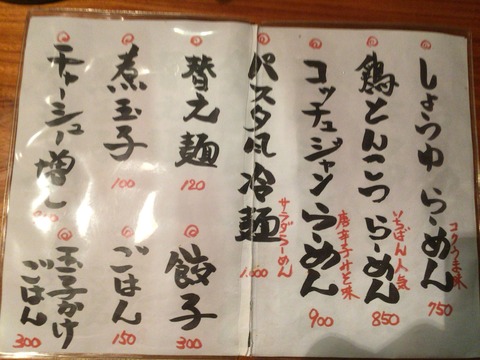 しょうゆらーめん
コクうま味
750
鶏とんこつらーめん
いちばん人気
850
コッチュジャンらーめん
唐辛子みそ味
900
パスタ風冷麺
サラダらーめん
1,000
替え麺
120
餃子
300
煮玉子
100
ごはん
150
チャーシュー増し
玉子かけ
ごはん
300